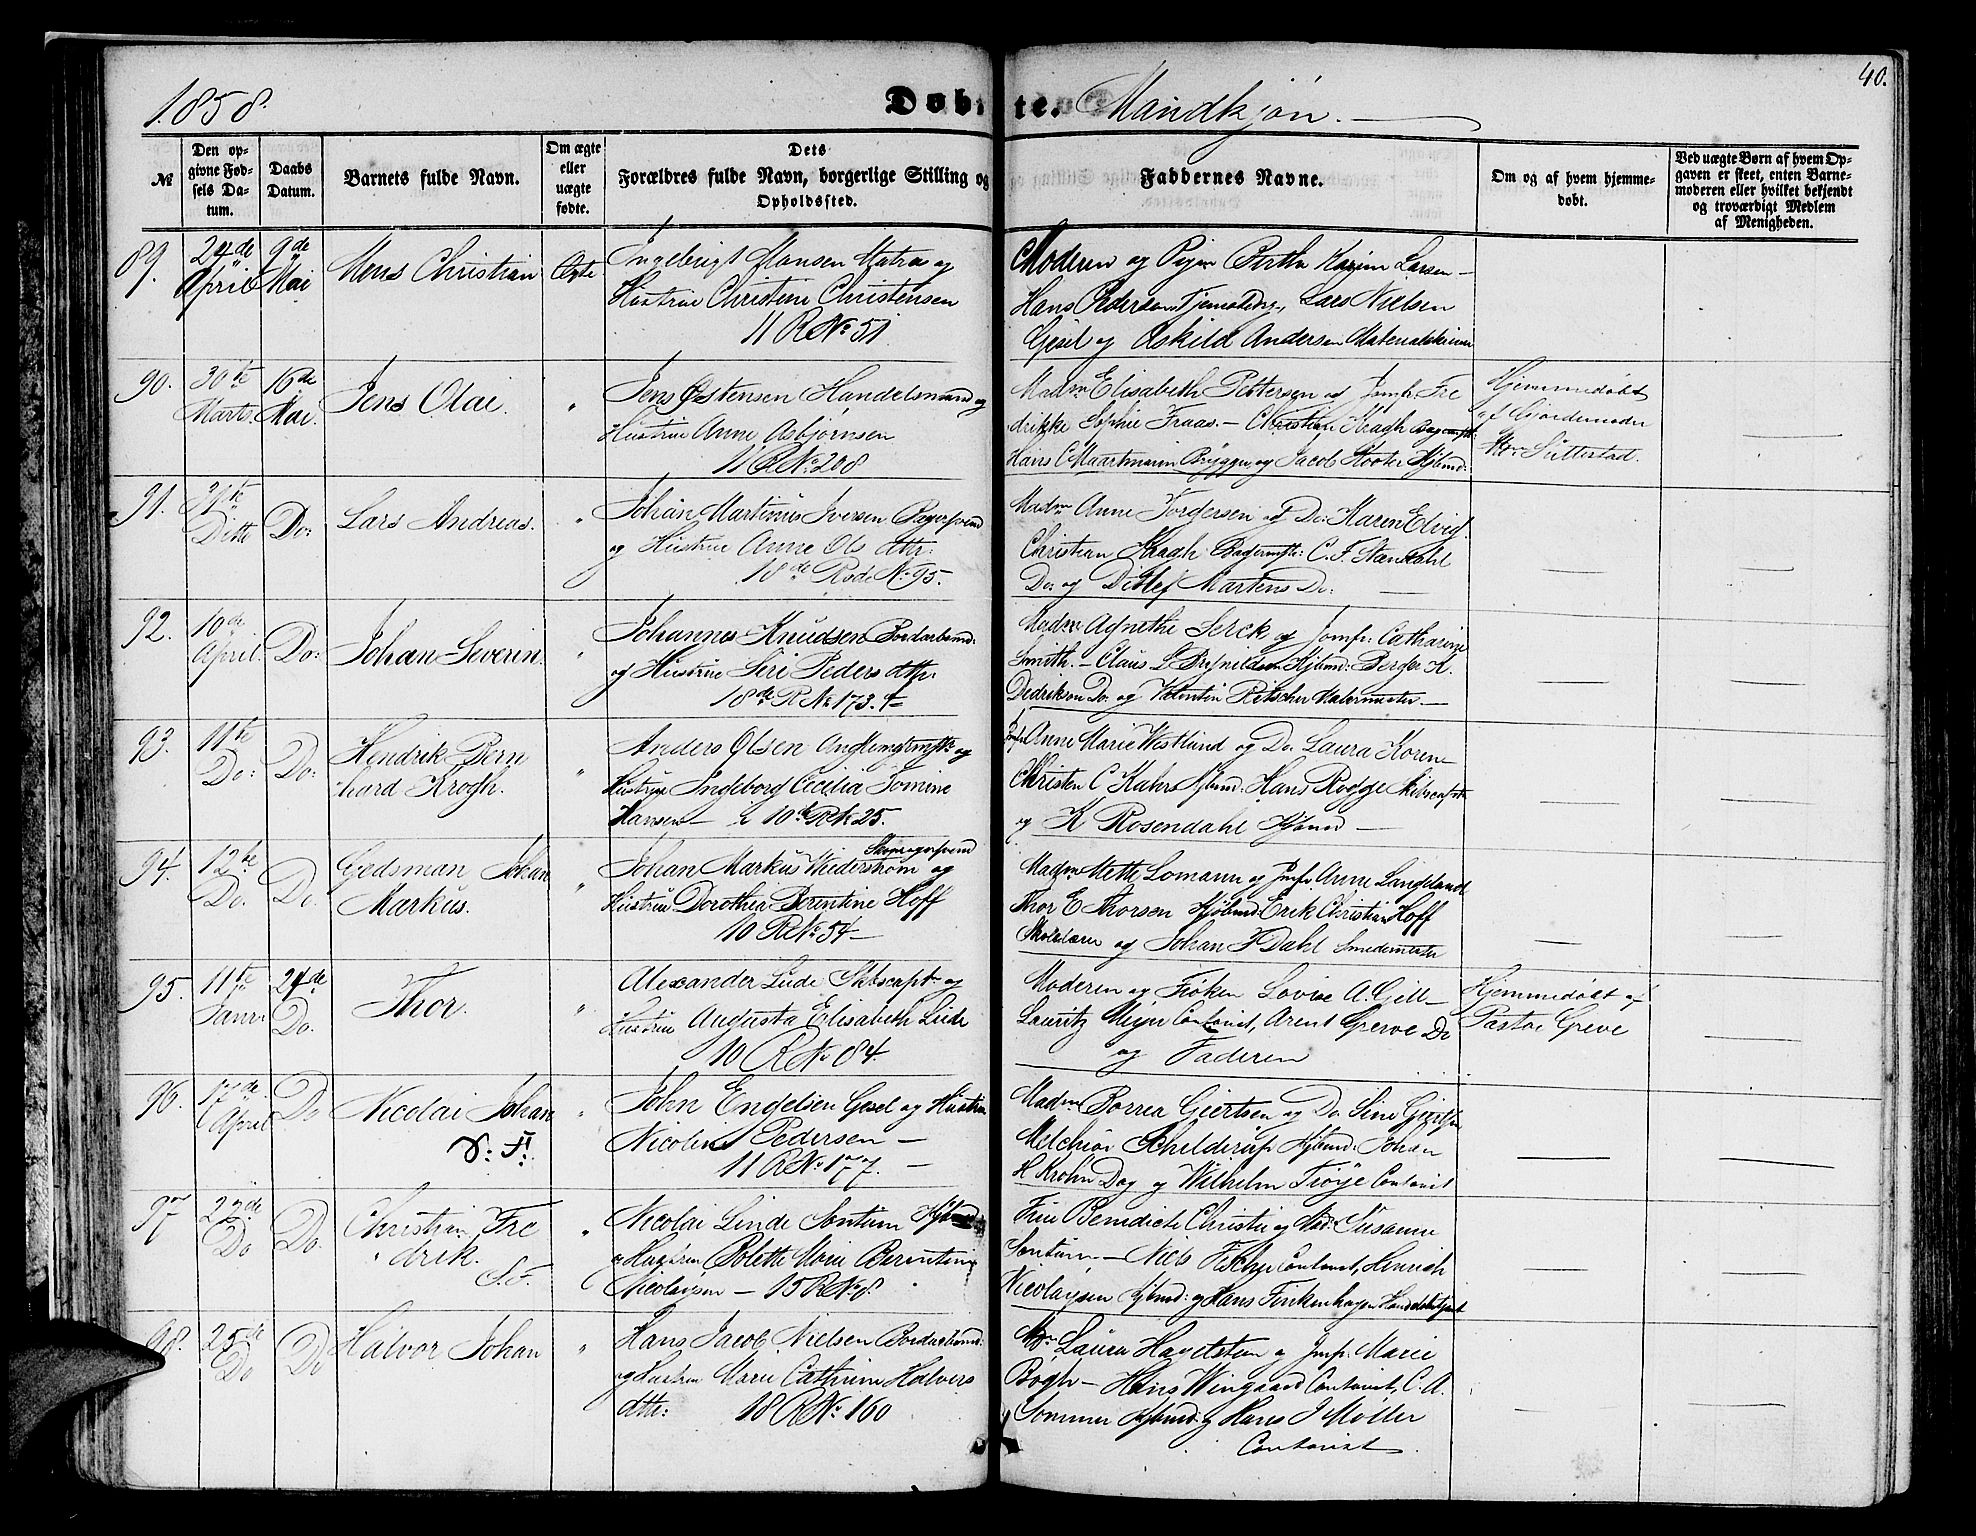 40.
1858. Døbte. Mandkjøn. —
№
Den op-
givne Fød-
sels Da-
tum.
Daabs
Datum.
Barnets fulde Navn.
Om ægte
eller
uægte
fødte.
Dets
Forældres fulde Navn, borgerlige Stilling og
Opholdssted.
Faddernes Navne.
Om og af hvem hjemme-
døbt.
Ved uægte Børn af hvem Op-
gaven er skeet, enten Barne-
moderen eller hvilket bekjendt
og troværdigt Medlem
af Menigheden.
89. 24de April 9de Mai Mens Christian Ægte
Ingebrigt Hansen Matros og
Hustrue Christine Christensen
11 R No 51
Moderen og Pigen Birthe Karine Larsen —
Hans Pedersen, Lars Nielsen
Gesel og Askild Andersen
90. 30te Marts. 16de Mai. Jens Olai. "
Jens Østensen Handelsmand og
Hustrue Anne Asbjørnsen
11 R No 208
Madm Elisabeth Pettersen og Jomf: Fre
drikke Sophie Fraas. — Christian Kragh Bagermstr:
Hans C Maartmann Brygger og Jacob Kooter Kjbmd:
Hjemmedøbt
af Gjordemoder
Mdm Sutterstad.
91. 31te Ditto Do: Lars Andreas. "
Johan Martinus Iversen Bagersvend
og Hustrue Anne Ols dttr:
18de Rode No 95.
Madm Anne Tordersen og Do: Karen Elvig.
Christian Kragh Bagermstr: C. F. Stendahl
Do: og Ditlef Martens Do:
92. 10de April. Do: Johan Severin. "
Johannes Knudsen Bordarbmd:
og Hustrue Siri Peders dtr:
18de R No 173. —
Madm Agnethe Serck og Jomfr: Cathrine
Smith. — Claus L Kjbmd: Berger A.
Didriksen Do. og Valentin Retscher Malermester. —
93. 11te Do: Do: Hendrik Bern
hard Krogh. "
Anders Olsen og
Hustrue Ingeborg Cecilia Tomine
Hansen — 10de R No 25.
Jomfr Anne Marie Westlund og Do. Laura Koren
Christen C Kahrs Kjbmd. Hans Rogge Skibscaptn
og K Rosendahl Kjbmd —
94. 12te Do. Do. Gedsman Johan
Markus. "
Skomagersvend
Johan Markus Wiederstrøm og
Hustrue Dorothea Berentine Hoff
10 R No 54 —
Madm Mette Lomann og Jmfr Anne Langeland
Thor E Thorsen Kjøbmd. Erik Christian Hoff
Skolelærer og Johan F Dahl Smedemester
95. 11te Janr. 24de Do. Thor. "
Alexander Lude Skbscaptn og
Hustrue Augusta Elisabeth Lude
10 R No 84.
Moderen og Frøken Lovise A. Gill —
Lauritz Meyer Contorist, Arent Greve Do
og Faderen
Hjemmedøbt af
Pastor Greve
96. 17de April Do Nicolai Johan
D: F. "
John Engelsen Gesel og Hustrue
Nicoline Pedersen —
11 R No 177. —
Madm Borrea Giertsen og Do. Sine Giertsen
Melchior Schilderup Kjbmd. Johan
H Krohn Dag og Wilhelm Frøye Contorist
97 22de Do Do. Christian Fre
drik.
S. F. "
Nicolai Linde Sontum Kjbmd
og Hustrue Bolette Marie Berentine
Nicolaysen — 15 R No 8.
Frue Benedicte Christie og Mad. Susanne
Sontum — Niels Fischer Contorist, Hinrich
Nicolaysen Kjbmd: og Hans Finkenhagen
98. 25de Do Do Halvor Johan "
Hans Jacob Nielsen Bordarbmd:
og Hustrue Marie Cathrine Halvors
dttr: 18 R No 160
Mdm Laura Hagelsteen og Jmfr: Marie
Bøgh — Hans Wingaard Contorist, C. A.
Sommer Kjbmd: og Hans J Møller
Contorist.